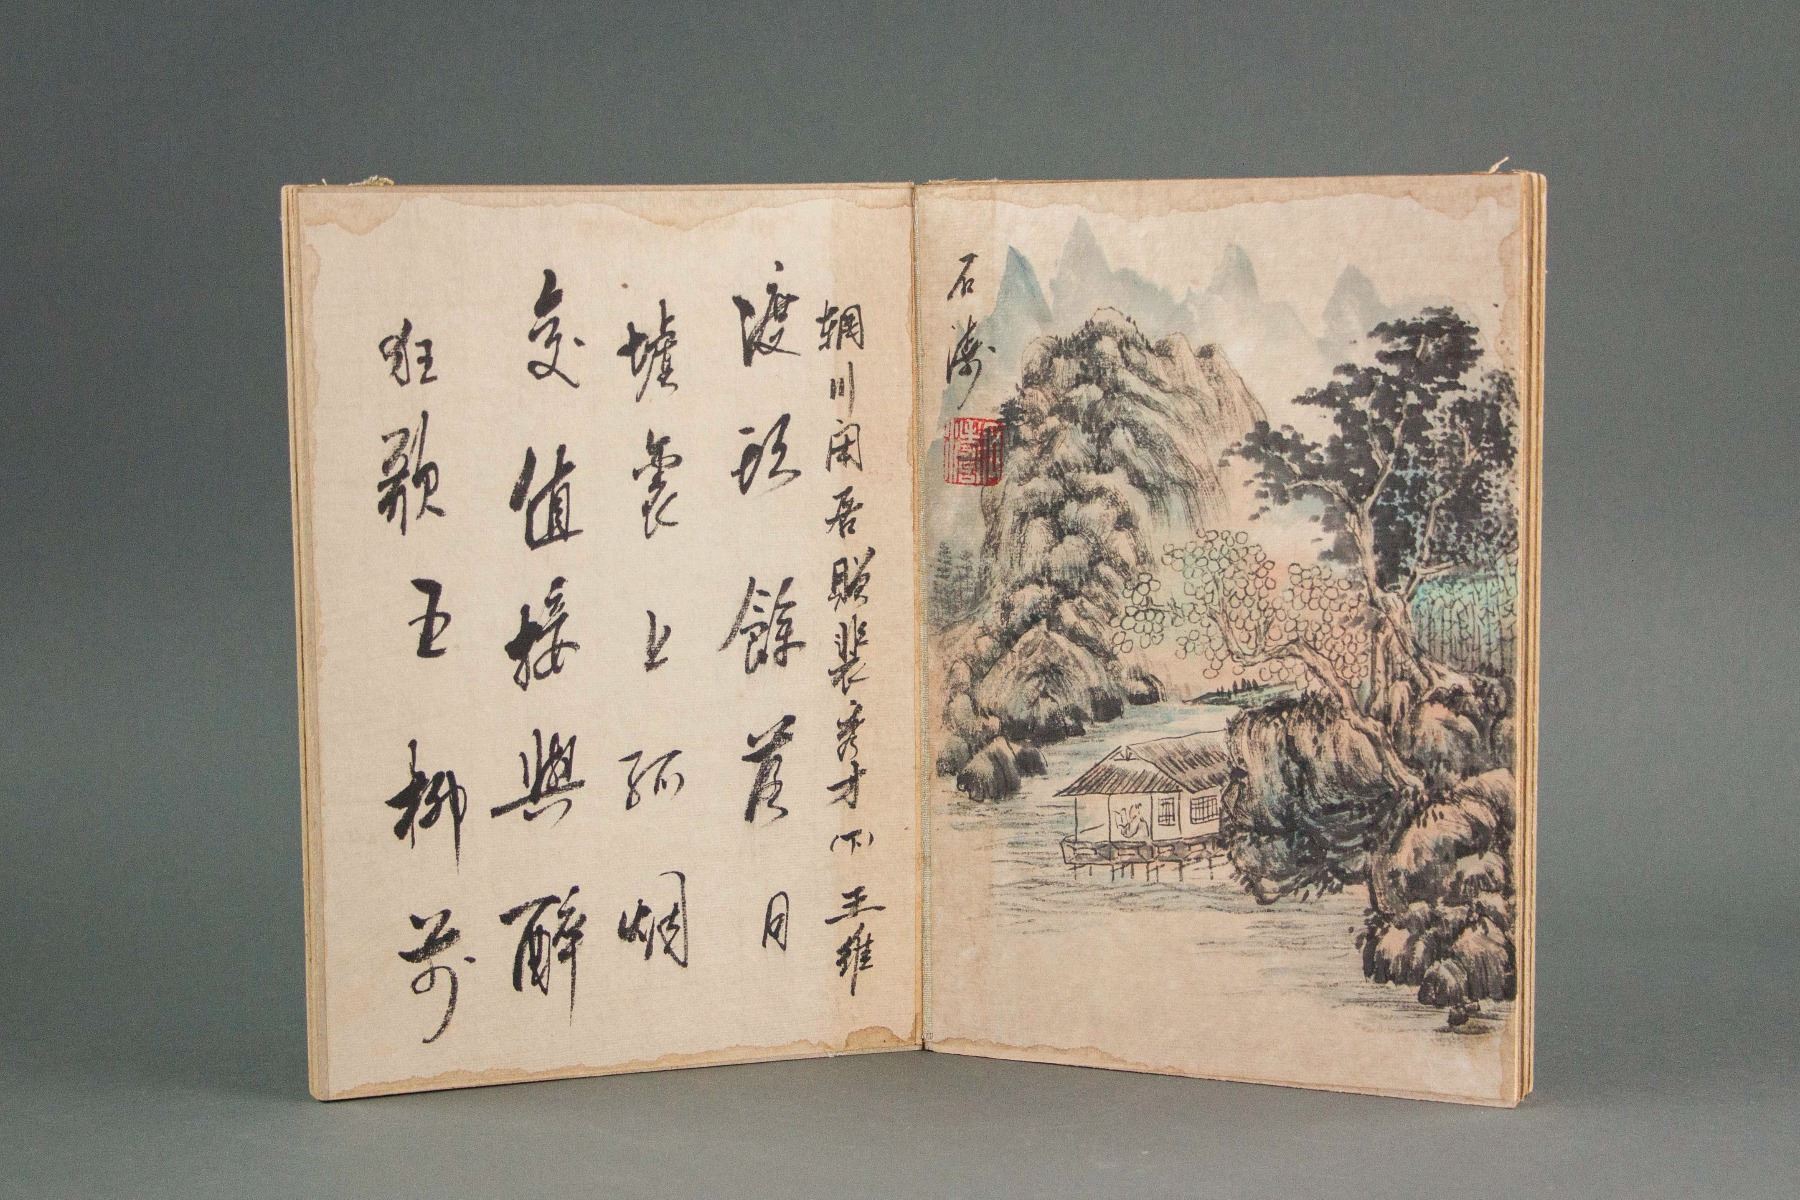 石濤
輞川闲居贈裴秀才(下) 王維
渡头餘落日
墟裏上孤烟
复值接與醉
狂歌五柳前